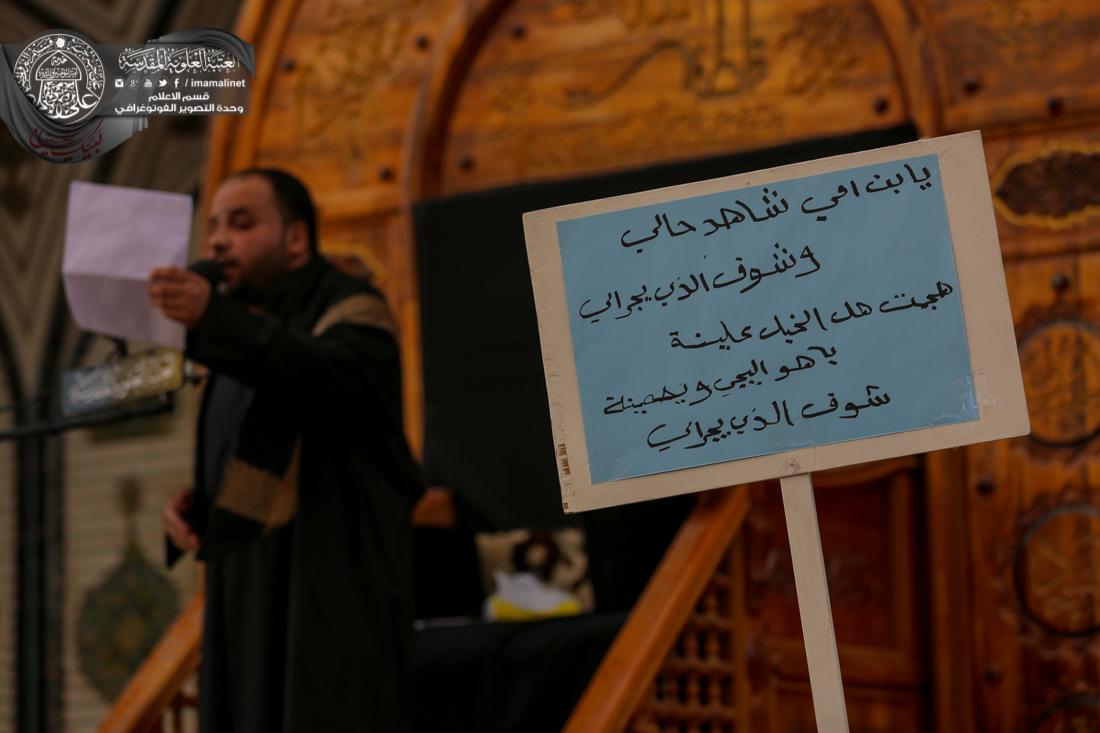 العتبة العلوية المقدسة
/ imamalinet
قسم الاعلام
وحدة التصوير الفوتوغرافي
يا بن امي شاهد حالي
وشوف الذي يجرالي
هجمت هل الخيل علينة
يا هو اليجي ويحمينة
شوف الذي يجرالي